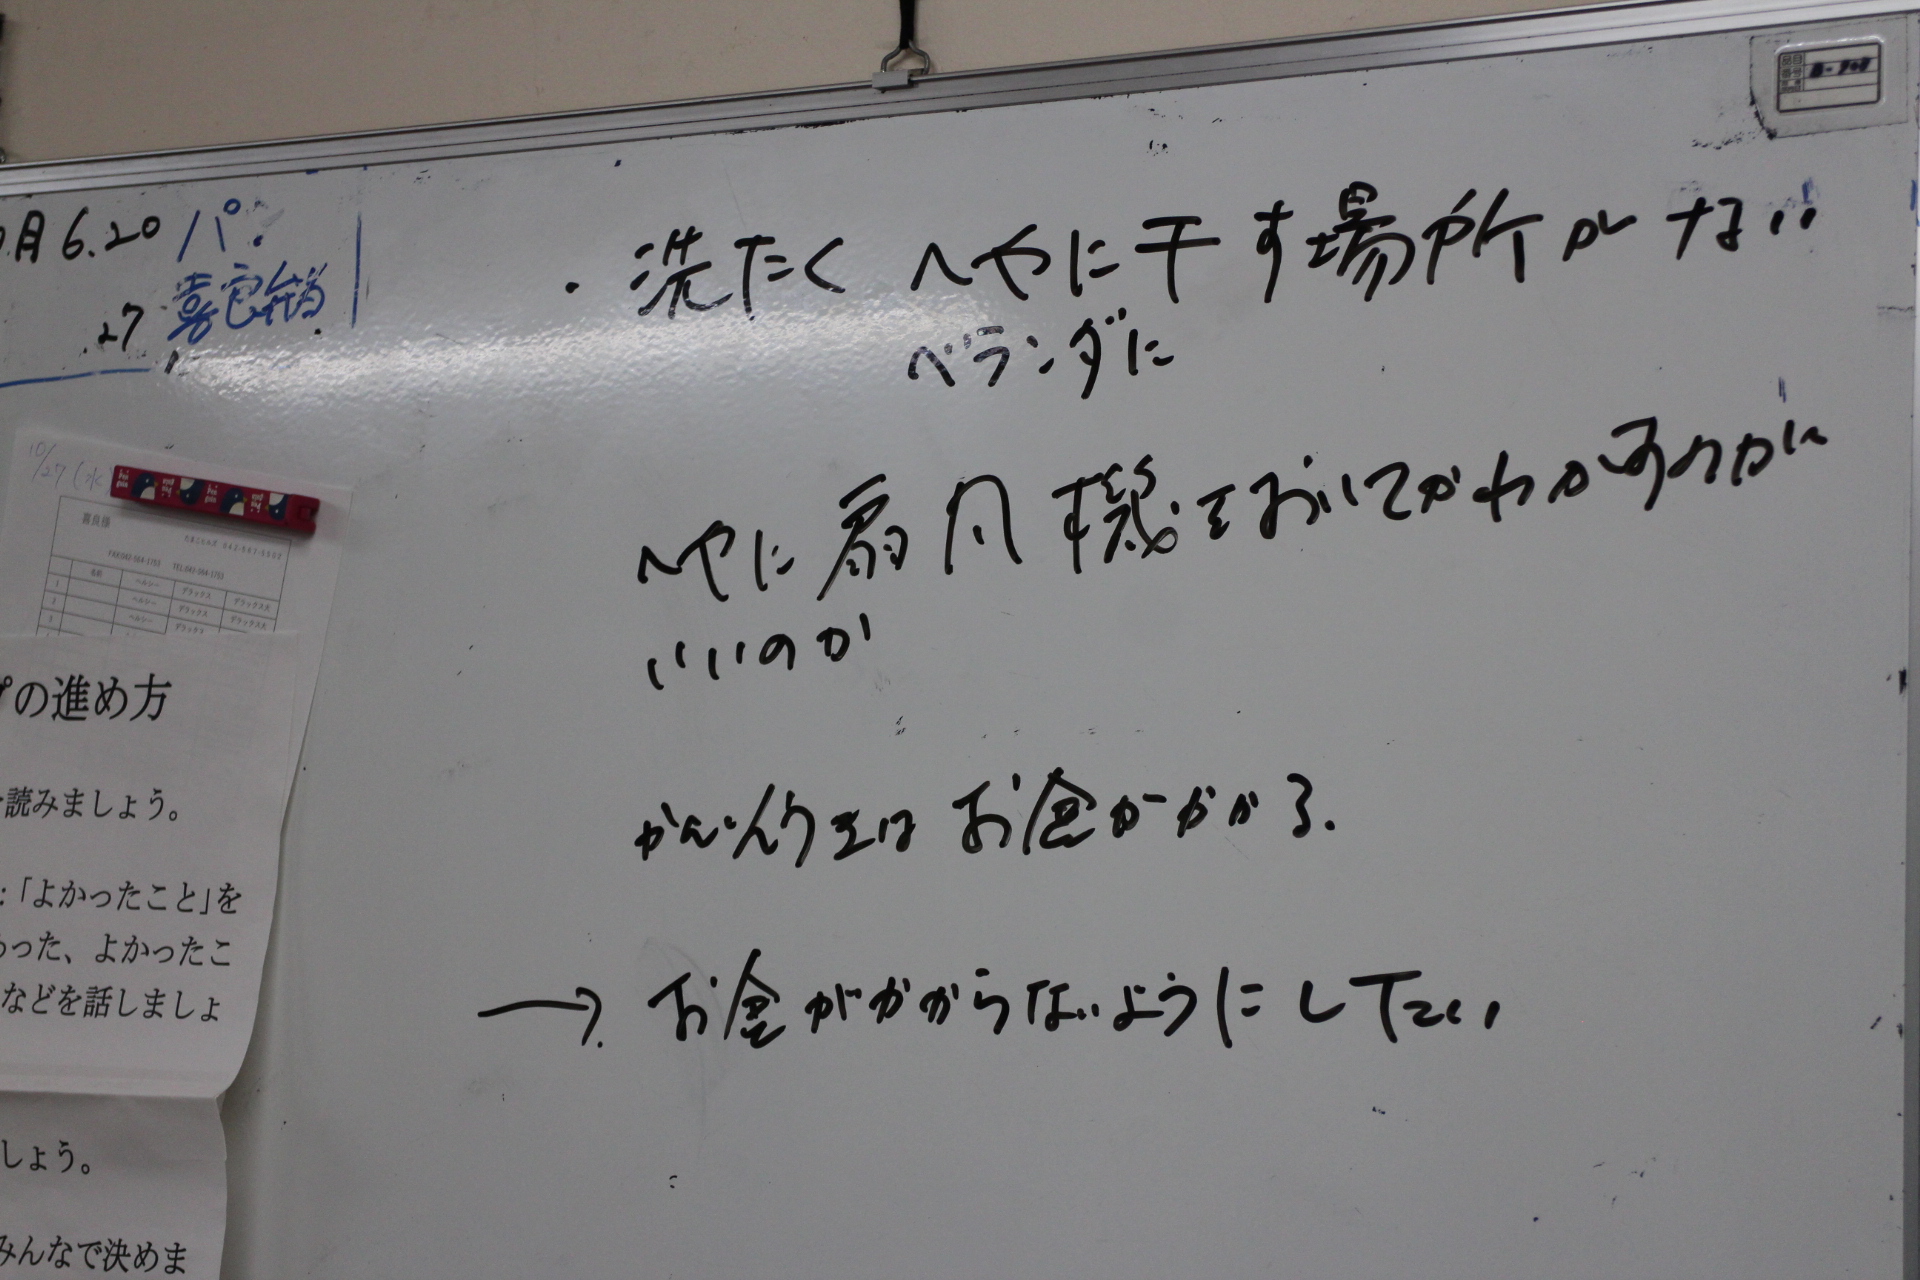 月6.20 パン
.27 喜良弁当
・洗たく へやに干す場所がない
ベランダに
へやに扇風機をおいてかわかすのが
いいのか
かんそうきはお金がかかる.
→ お金がかからないようにしたい
10/27(水
喜良様
FAX:042-564-1753 TEL:042-564-1753
名前 ヘルシー デラックス デラックス大
1 ヘルシー デラックス デラックス大
2 ヘルシー デラックス デラックス大
3
の進め方
読みましょう。
:「よかったこと」を
った、よかったこ
などを話しましょ
しょう。
みんなで決めま